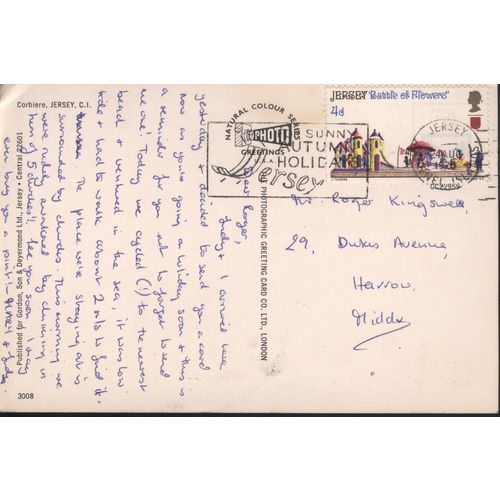 Corbiere, JERSEY, C.I.
Published for Gordon, Son & Deyermond Ltd., Jersey • Central 22601
3008
NATURAL COLOUR SERIES
PHOTO
GREETINGS
THE PHOTOGRAPHIC GREETING CARD CO. LTD., LONDON
SUNNY
AUTUMN
HOLIDAYS
Jersey
JERSEY 'Battle of Flowers'
4d
JERSEY
Dear Roger,
Judy & I arrived here
yesterday & decided to send you a card
now as you're going on holiday soon & this is
a reminder for you not to forget to send
me one! Today we cycled (!) to the nearest
beach & ventured in the sea, it was low
tide & had to walk about 2 mls to find it.
The place we're staying at is
surrounded by churches. This morning we
were rudely awakened by chiming in
of 5 churches!! See you soon I may
even buy you a pint! – & Judy
Mr Roger Kingswell,
29, Dukes Avenue,
Harrow,
Middx